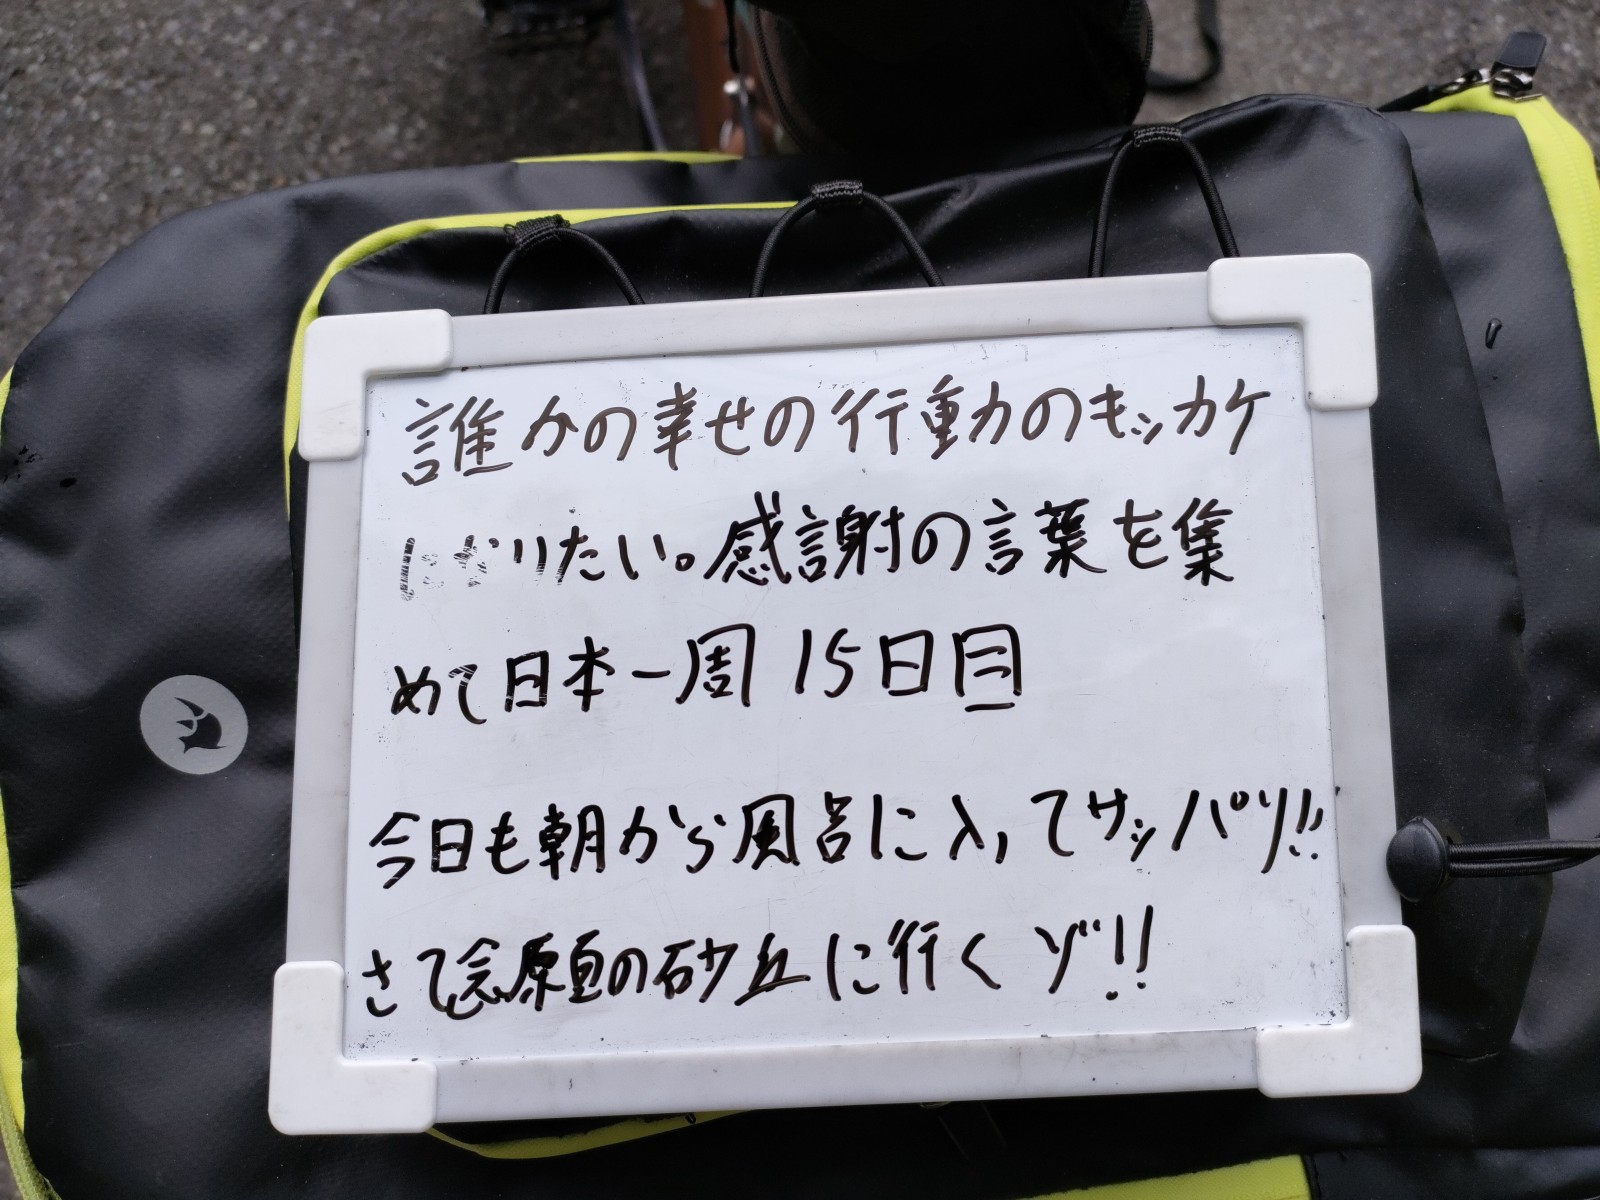 誰かの幸せの行動のキッカケ
になりたい。感謝の言葉を集
めて日本一周 15日目
今日も朝から風呂に入ってサッパリ!!
さて念願の砂丘に行くゾ!!